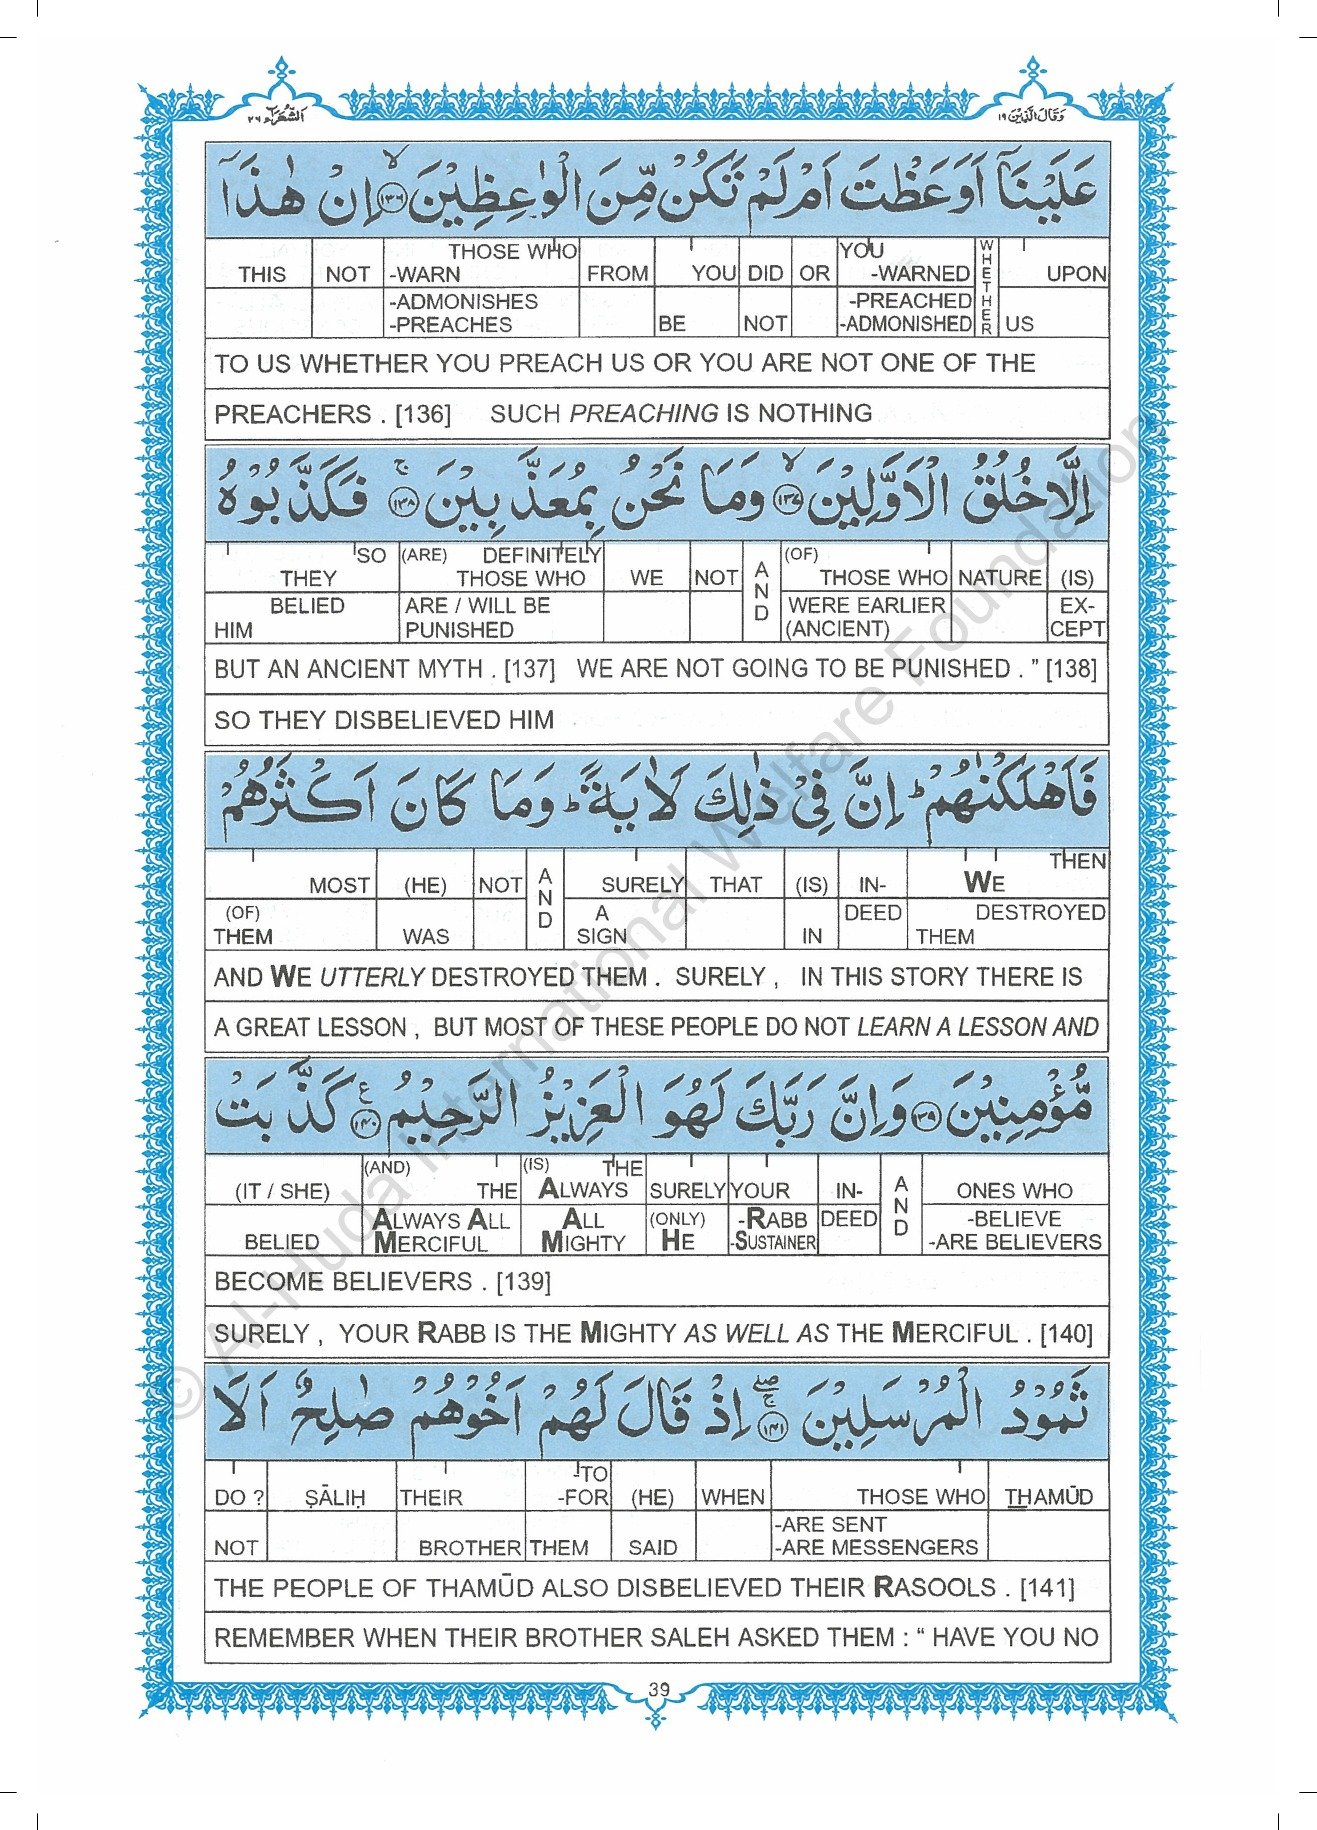 وَقَالَ الَّذِيْنَ ١٩
الشُّعَرَآء ٢٦
عَلَيْنَآ اَوَعَظْتَ اَمْ لَمْ تَكُنْ مِّنَ الْوٰعِظِيْنَ ۙ﴿١٣٦﴾ اِنْ هٰذَآ
THOSE WHO YOU W
THIS NOT -WARN FROM YOU DID OR -WARNED H E UPON
-ADMONISHES -PREACHED T H
-PREACHES BE NOT -ADMONISHED E R US
TO US WHETHER YOU PREACH US OR YOU ARE NOT ONE OF THE
PREACHERS . [136] SUCH PREACHING IS NOTHING
اِلَّا خُلُقُ الْاَوَّلِيْنَ ۙ﴿١٣٧﴾ وَمَا نَحْنُ بِمُعَذَّبِيْنَ ۚ﴿١٣٨﴾ فَكَذَّبُوْهُ
SO (ARE) DEFINITELY (OF)
THEY THOSE WHO WE NOT A THOSE WHO NATURE (IS)
BELIED ARE / WILL BE N WERE EARLIER EX-
HIM PUNISHED D (ANCIENT) CEPT
BUT AN ANCIENT MYTH . [137] WE ARE NOT GOING TO BE PUNISHED . ” [138]
SO THEY DISBELIEVED HIM
فَاَهْلَكْنٰهُمْ ؕ اِنَّ فِيْ ذٰلِكَ لَاٰيَةً ؕ وَمَا كَانَ اَكْثَرُهُمْ
THEN
MOST (HE) NOT A SURELY THAT (IS) IN- WE
(OF) N A DEED DESTROYED
THEM WAS D SIGN IN THEM
AND WE UTTERLY DESTROYED THEM . SURELY , IN THIS STORY THERE IS
A GREAT LESSON , BUT MOST OF THESE PEOPLE DO NOT LEARN A LESSON AND
مُّؤْمِنِيْنَ ﴿١٣٩﴾ وَاِنَّ رَبَّكَ لَهُوَ الْعَزِيْزُ الرَّحِيْمُ ۧ﴿١٤٠﴾ كَذَّبَتْ
(AND) (IS) THE
(IT / SHE) THE ALWAYS SURELY YOUR IN- A ONES WHO
ALWAYS ALL ALL (ONLY) -RABB DEED N -BELIEVE
BELIED MERCIFUL MIGHTY HE -SUSTAINER D -ARE BELIEVERS
BECOME BELIEVERS . [139]
SURELY , YOUR RABB IS THE MIGHTY AS WELL AS THE MERCIFUL . [140]
ثَمُوْدُ الْمُرْسَلِيْنَ ۖۚ﴿١٤١﴾ اِذْ قَالَ لَهُمْ اَخُوْهُمْ صٰلِحٌ اَلَا
-TO
DO ? ṢĀLIḤ THEIR -FOR (HE) WHEN THOSE WHO THAMŪD
-ARE SENT
NOT BROTHER THEM SAID -ARE MESSENGERS
THE PEOPLE OF THAMŪD ALSO DISBELIEVED THEIR RASOOLS . [141]
REMEMBER WHEN THEIR BROTHER SALEH ASKED THEM : “ HAVE YOU NO
39
© Al-Huda International Welfare Foundation